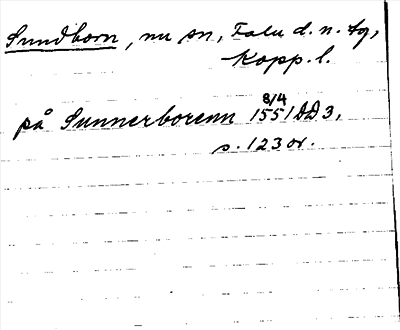 Sundborn, nu sn, Falu d. n. tg,
Kopp. l.
på Sunnerborenn 8/4 1551 DD 3,
s. 123 or.